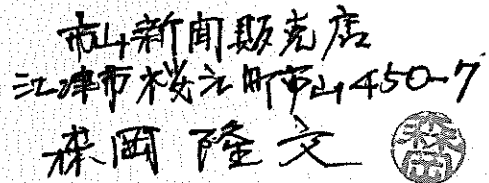 市山新聞販売店
江津市桜江町市山450-7
森岡 隆文 森岡